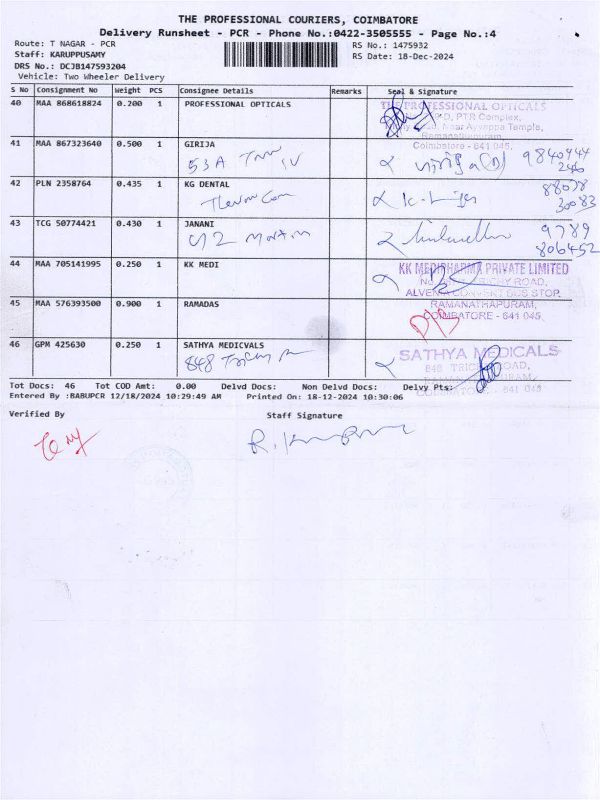 THE PROFESSIONAL COURIERS, COIMBATORE
Delivery Runsheet - PCR - Phone No.:0422-3505555 - Page No.:4
Route: T NAGAR - PCR RS No.: 1475932
Staff: KARUPPUSAMY RS Date: 18-Dec-2024
DRS No.: DCJB147593204
Vehicle: Two Wheeler Delivery
S No Consignment No Weight PCS Consignee Details Remarks Seal & Signature
40 MAA 868618824 0.200 1 PROFESSIONAL OPTICALS
THE PROFESSIONAL OPTICALS
PTR Complex,
Near Ayyappa Temple,
Ramanathapuram,
Coimbatore - 641 045.
41 MAA 867323640 0.500 1 GIRIJA
53 A
42 PLN 2358764 0.435 1 KG DENTAL
88078
30083
43 TCG 50774421 0.430 1 JANANI
9789
806452
44 MAA 705141995 0.250 1 KK MEDI
KK MEDIPHARMA PRIVATE LIMITED
TRICHY ROAD,
ALVERNIA CONVENT BUS STOP,
RAMANATHAPURAM,
COIMBATORE - 641 045
45 MAA 576393500 0.900 1 RAMADAS
46 GPM 425630 0.250 1 SATHYA MEDICVALS
848 Trichy
SATHYA MEDICALS
848 TRICHY ROAD,
COIMBATORE - 641 045
Tot Docs: 46 Tot COD Amt: 0.00 Delvd Docs: Non Delvd Docs: Delvy Pts:
Entered By :BABUPCR 12/18/2024 10:29:49 AM Printed On: 18-12-2024 10:30:06
Verified By Staff Signature